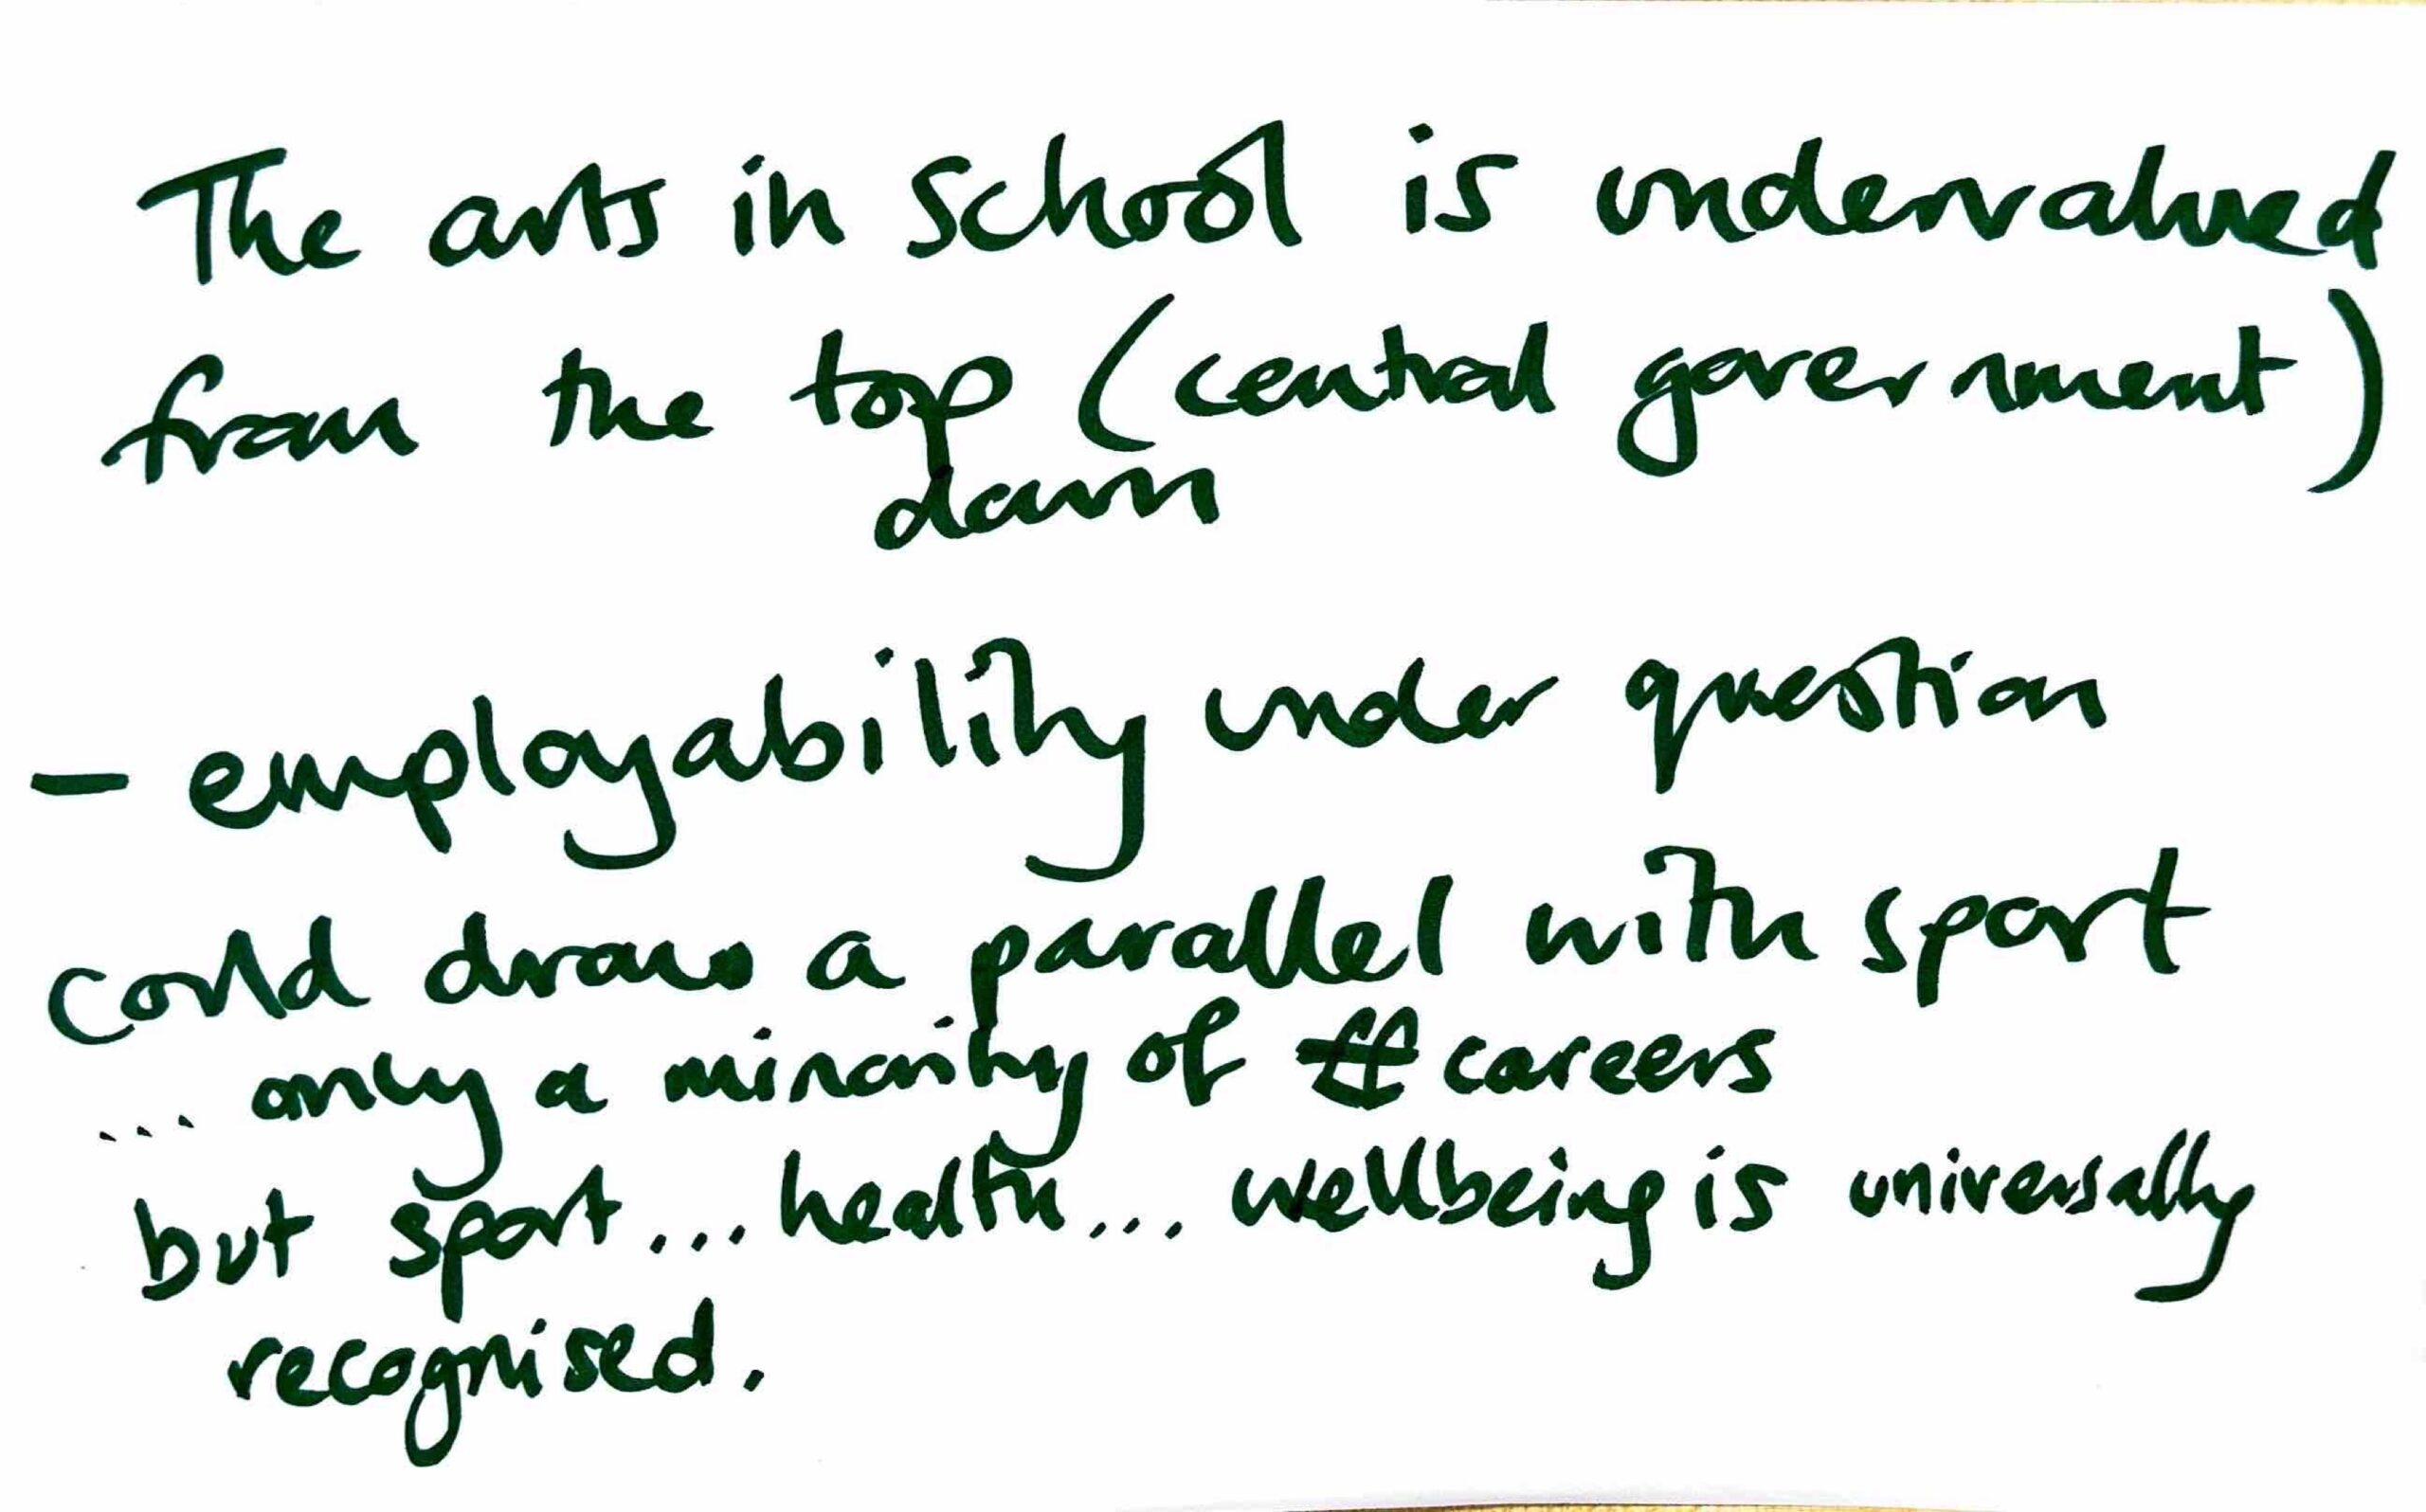 The arts in school is undervalued
from the top (central government)
down
- employability under question
could draw a parallel with sport
... only a minority of careers
but sport... health... wellbeing is universally
recognised.